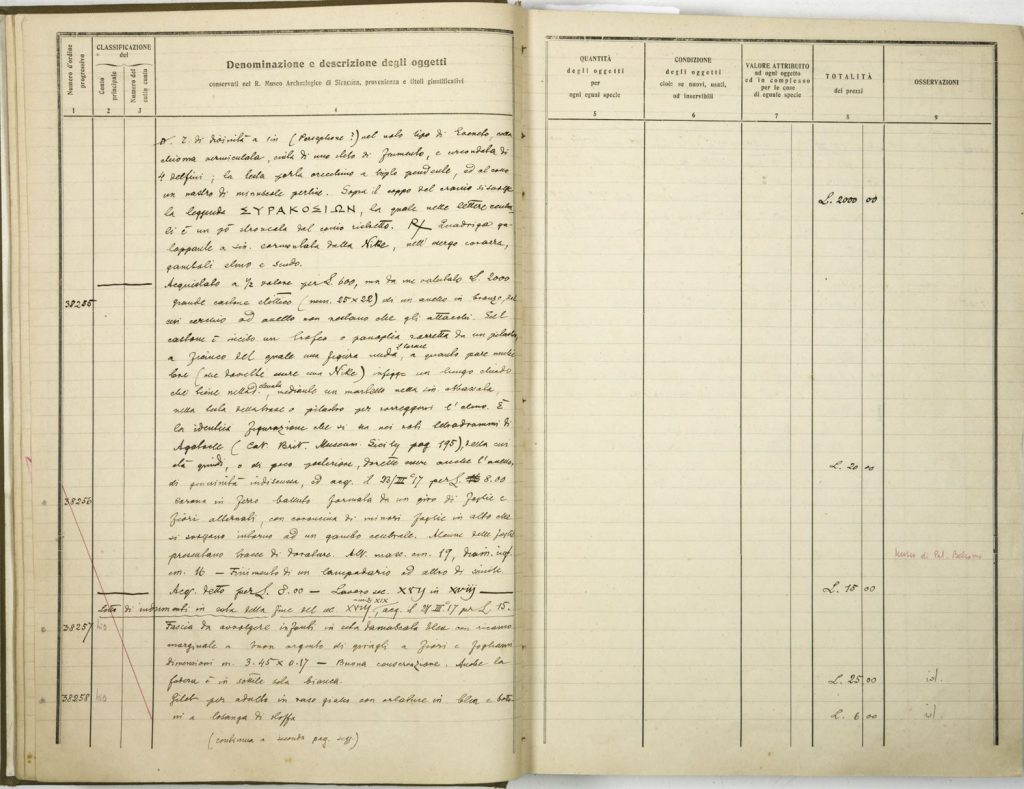 Numero d'ordine progressivo
CLASSIFICAZIONE
del
Conto principale
Numero del sotto conto
Denominazione e descrizione degli oggetti
conservati nel R. Museo Archeologico di Siracusa, provenienza e titoli giustificativi
1
2
3
4
QUANTITÀ
degli oggetti
per
ogni egual specie
CONDIZIONE
degli oggetti
cioè: se nuovi, usati,
od inservibili
VALORE ATTRIBUITO
ad ogni oggetto
ed in complesso
per le cose
di eguale specie
TOTALITÀ
dei prezzi
OSSERVAZIONI
5
6
7
8
9
di divinità a sin (Persephone ?) nel noto tipo di Eveneto, colla
chioma vermiculata, cinta di uno stelo di frumento, e circondata di
4 delfini; la testa porta orecchino a triplo pendente, ed al collo
un nastro di minuscole perline. Sopra il coppo del cranio si svolge
la leggenda ΣΥΡΑΚΟΣΙΩΝ, la quale nelle lettere centra-
li è un pò stroncata dal conio ristretto. Quadriga ga-
loppante a sin. coronata dalla Nike, nell' esergo corazza,
gambali elmo e scudo.
Acquistato a 1/2 valore per L. 600, ma da me valutato L. 2000
L. 2000 00
38255
grande castone elittico (mm. 25 x 22) di un anello in bronzo, del
cui cerchio ad anello non restano che gli attacchi. Sul
castone è inciso un trofeo o panoplia sorretta da un pilastro
a fianco del quale una figura nuda, a quanto pare
(che dovrebbe essere una Nike) infigge un lungo chiodo
che tiene nella d. mediante un martello nella sin. abbassata,
nella testa della trave o pilastro per sorreggervi l'elmo. È
la identica figurazione che si ha nei noti tetradrammi di
Agatocle (Cat. Brit. Museum. Sicily pag. 195), della cui
età quindi, o di poco posteriore, dovette essere anche l'anello,
di genuinità indiscussa, ed acq. il 23/III 17 per L. 8.00
L. 20 00
38256
Corona in ferro battuto formata da un giro di foglie e
fiori alternati, con coroncina di minori foglie in alto che
si svolgono intorno ad un gambo centrale. Alcune delle foglie
presentano tracce di dorature. Alt. mass. cm. 19, diam. inf.
cm. 16 - Finimento di un lampadario od altro di simile.
Acq. detto per L. 8.00 - Lavoro sec. XVII in XVIII
L. 15 00
Museo di Pal. Bellomo
Lotto di indumenti in seta della fine del sec. XVIII acq. il 24 III 17 per L. 15.
38257
Fascia da avvolgere infanti in seta damascata blea con ricamo
marginale a buon argento di gringli a fiori e fogliami
dimensioni m. 3.45 x 0.17 - Buona conservazione. Anche la
fodera è in sottile seta bianca.
L. 25 00
id.
38258
Gilet per adulto in raso grigio con orlature in blea e botto-
ni a losanga di stoffa
L. 6 00
id.
(continua a seconda pag. segg.)